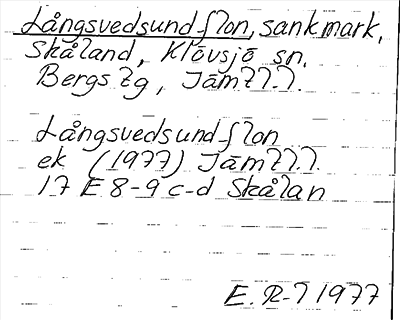 Långsvedsundflon, sankmark,
Skåland, Klövsjö sn,
Bergs tg, Jämtl.
Långsvedsundflon
ek (1977) Jämtl.
17 E 8-9 c-d Skålan
E. R-l 1977